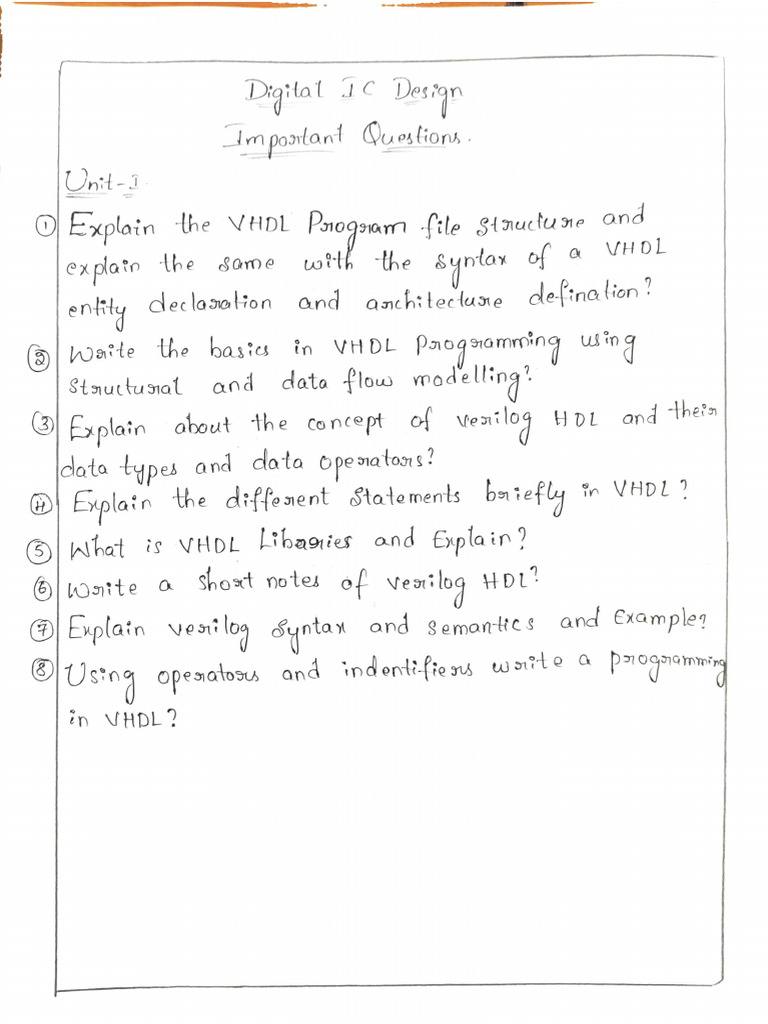 Digital IC Design
Important Questions.
Unit-I
① Explain the VHDL Program file structure and
explain the same with the syntax of a VHDL
entity declaration and architecture defination?
② Write the basics in VHDL Programming using
structural and data flow modelling?
③ Explain about the concept of verilog HDL and their
data types and data operators?
④ Explain the different statements briefly in VHDL?
⑤ What is VHDL Libraries and Explain?
⑥ Write a short notes of verilog HDL?
⑦ Explain verilog syntax and semantics and Example?
⑧ Using operators and indentifiers write a programming
in VHDL?